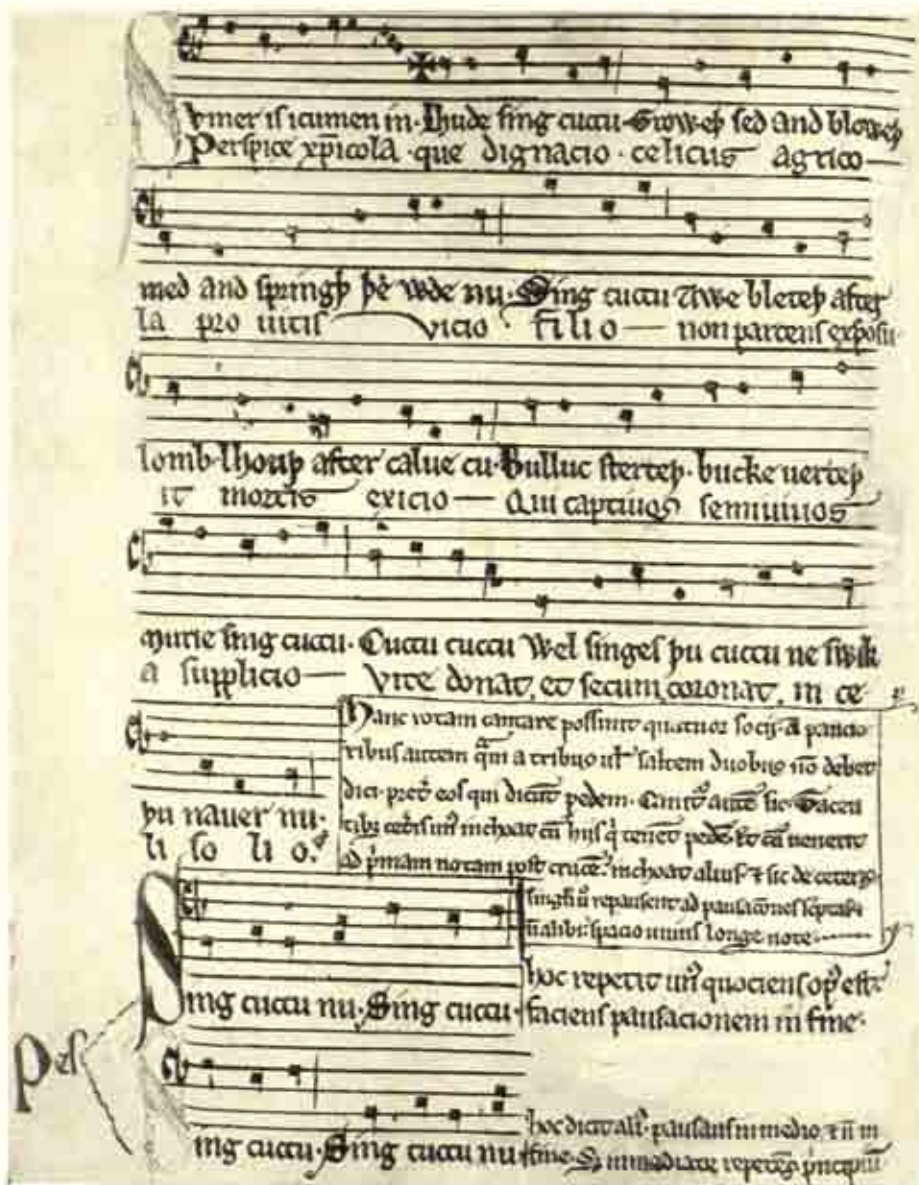 Svmer is icumen in · Lhude sing cuccu · Groweþ sed and bloweþ
Perspice xp̄icola · que dignacio · celicus agrico
med and springþ þe wde nu · Sing cuccu Awe bleteþ after
la pro uitis vicio filio non parcens exposu
lomb · lhouþ after calue cu · Bulluc sterteþ · bucke uerteþ
it mortis exicio Qui captiuos semiuiuos
murie sing cuccu · Cuccu cuccu Wel singes þu cuccu ne swik
a supplicio Vite donat, et secum coronat, in ce
þu nauer nu ·
li so li o.
Hanc rotam cantare possunt quatuor socij · A paucio
ribus autem qͣm a tribus ul̄ saltem duobus nō debet
dici · pret̄ eos qui dicūt pedem · Canit᷑ autē sic · Tacen
tibꝫ cet̄is unꝰ inchoat cū hijs q̇ tenēt pedē · Et cū uenerit
ad p̓mam notam post crucē · inchoat aliuꝰ · ⁊ sic de ceteris
singł̓i ū repausent ad pausacōnes sc̓ptas ⁊
n̄ alibi · spacio unius longe note
Sing cuccu nu · Sing cuccu ·
hoc repetit unꝰ quociens opꝰ est ·
faciens pausacionem in fine ·
Pes
Sing cuccu · Sing cuccu nu
hoc dicit aliꝰ · pausans in medio ⁊ n̄ in
fine · Sꝫ immediate repetēs p̓ncipiū